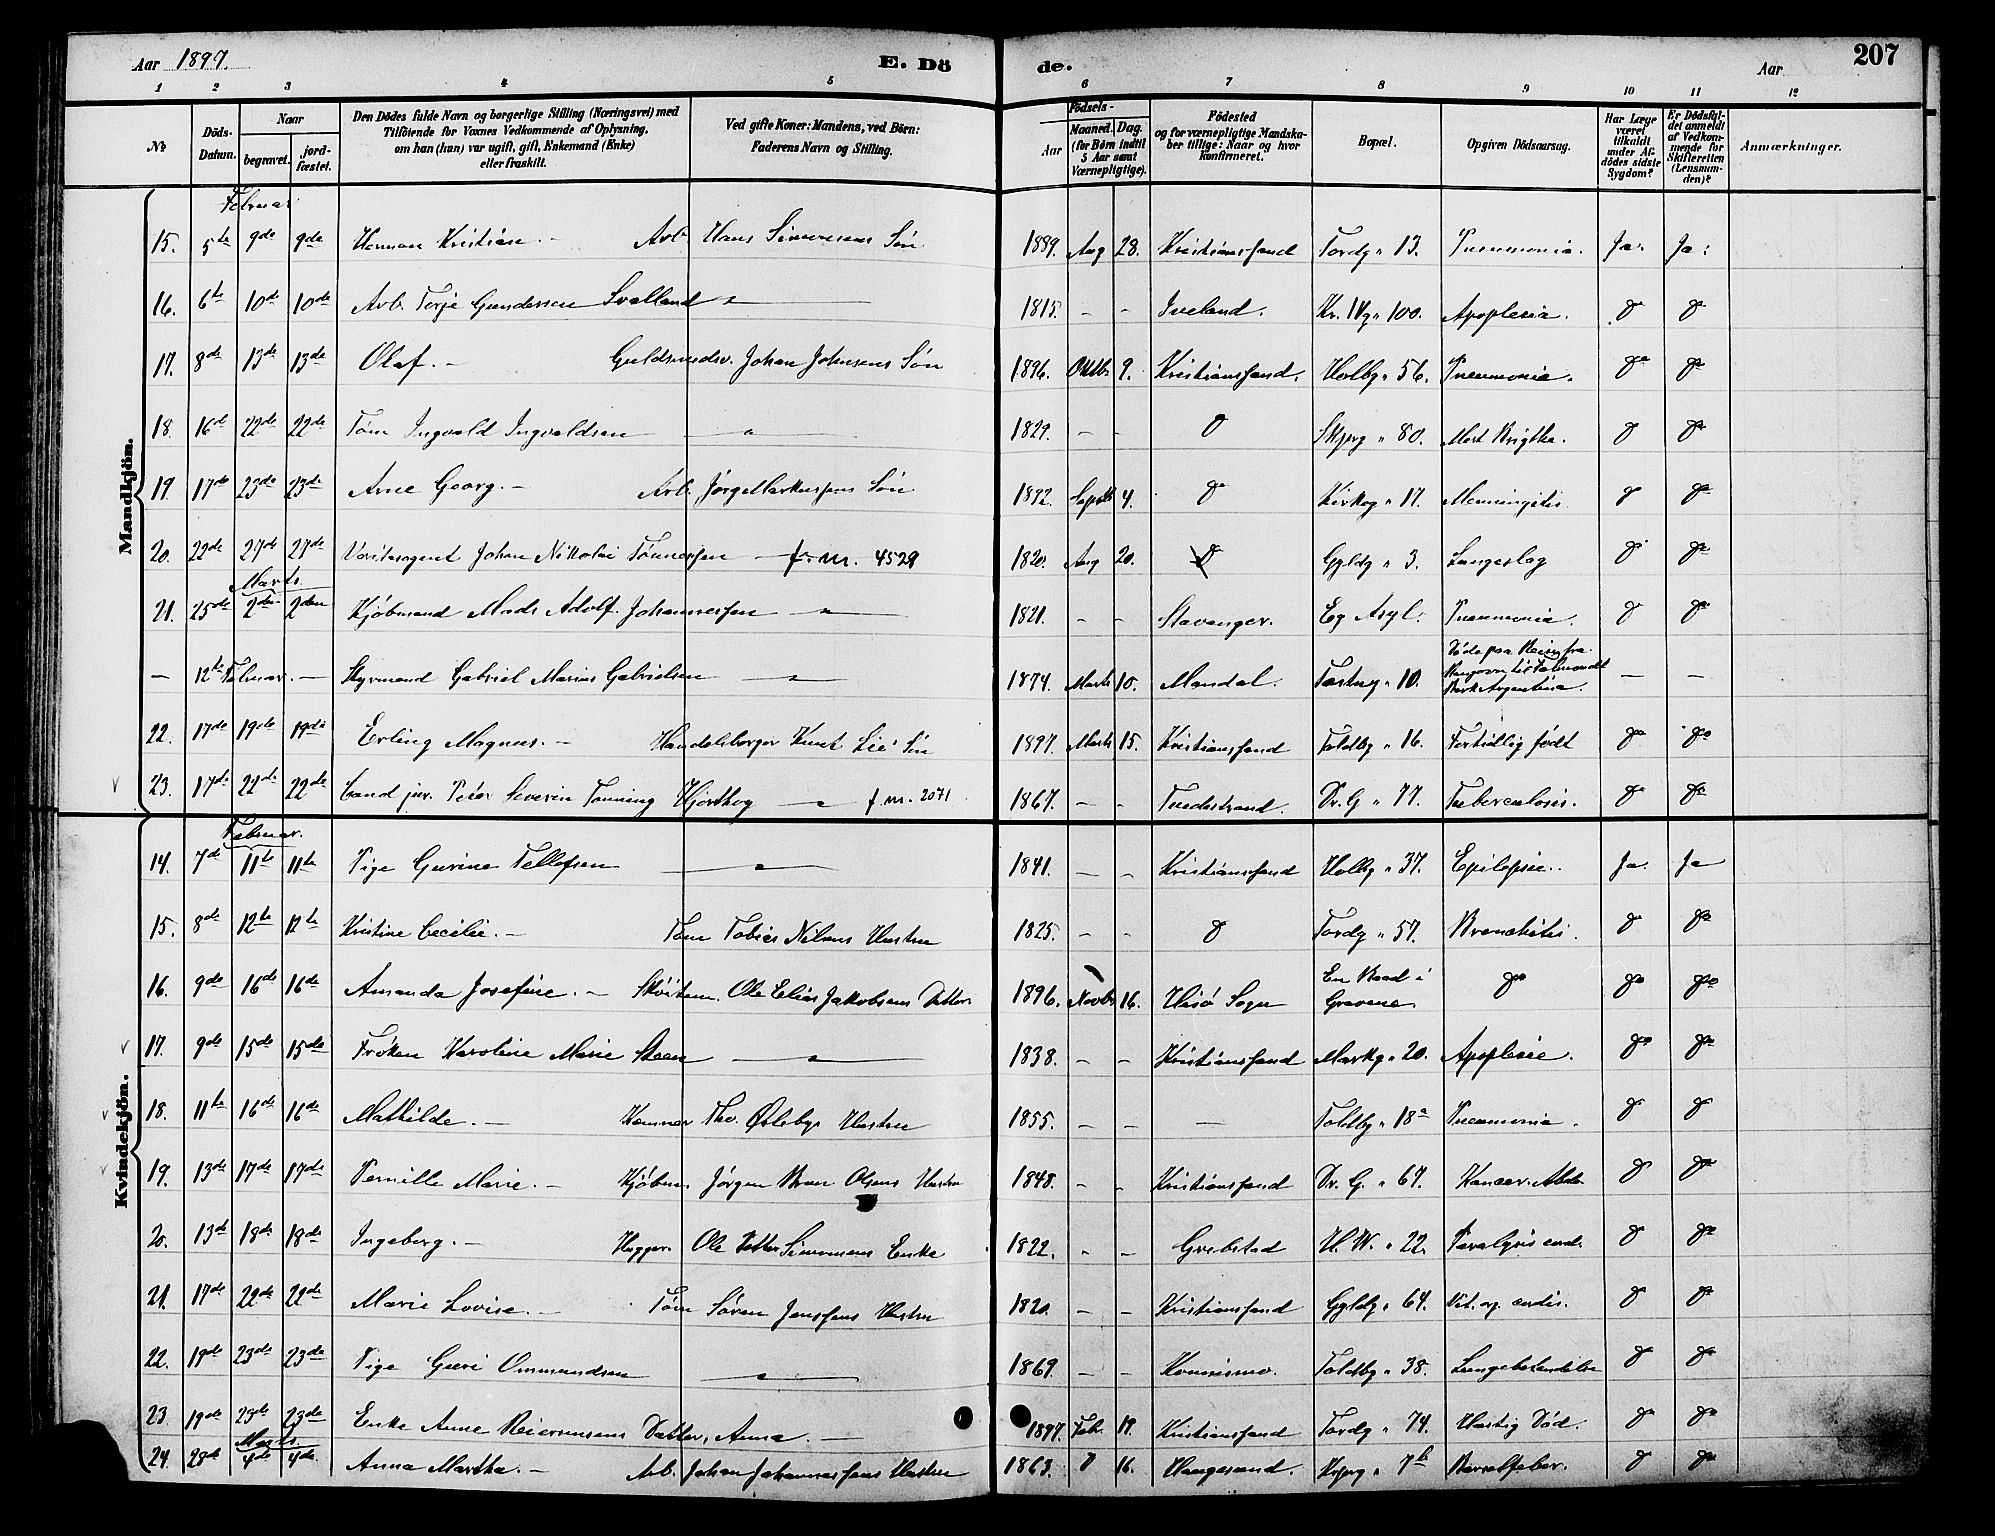 Aar 1897. E. Dö de. Aar 207
1 2 3 4 5 6 7 8 9 10 11 12
No Döds-Datum. Naar begravet. jord-fæstet. Den Dödes fulde Navn og borgerlige Stilling (Næringsvei) med Tilföiende for Voxnes Vedkommende af Oplysning, om han (hun) var ugift, gift, Enkemand (Enke) eller fraskilt. Ved gifte Koner: Mandens, ved Börn: Faderens Navn og Stilling. Födsels- Aar Maaned. Dag. (for Börn indtil 5 Aar samt Værnepligtige). Födested og for værnepligtige Mandska-ber tillige: Naar og hvor konfirmeret. Bopæl. Opgiven Dödsaarsag. Har Læge været tilkaldt under Af-dödes sidste Sygdom? Er Dödsfal-det anmeldt af Vedkom-mende for Skifteretten (Lensman-den)? Anmærkninger.
Mandkjön.
Februar
15. 5te 9de 9de Herman Kristian. – Arb. Hans Simonsens Søn 1889. Aug 28. Kristianssand Tordg " 13. Pneumonia. Ja. Ja.
16. 6te 10de 10de Arb. Terje Gundersen 1815. – – Iveland. Kr. IVg " 100. Apoplexia. do do
17. 8de 13de 13de Olaf. – Guldsmedsv. Johan Johnsens Søn 1896. Oktb. 9. Kristianssand. Holbg " 56. Pneumonia. do do
18. 16de 22de 22de Tøm Ingvald Ingvaldsen 1829. – – do Skjerg " 80. Morb. Brigthi. do do
19. 17de 23de 23de Arne Georg. – Arb. Jørg Markussens Søn 1892. Septb 4. do Kirkeg " 17. Meningitis do do
20. 22de 27de 27de Johan Nikolai Tønnessen f. m. 4529 1820. Aug 20. do Gyldg " 3. Lungeslag do do
Marts
21. 25de 2den 2den Kjøbmand Mads Adolf Johannessen 1821. – – Stavanger. Eg Asyl. Pneumonia. do do
– 12te Februar. – Styrmand Gabriel Marius Gabrielsen 1874. Marts 10. Mandal. " 10. Døde paa Reise fra Rangoon til Falmouth Bark Argentina. – –
22. 17de 19de 19de Erling Magnus. – Handelsborger Knut Lie's Søn 1897. Marts 15. Kristianssand Toldbg " 16. Fortidlig født do do
23. 17de 22de 22de Cand jur. Peter Severin Tønning Hjorthøg f. m. 2071 1867. – – Tvedestrand. Dr. G " 77. Tuberculosis. do do
Kvindekjön.
Februar.
14. 7de 11te 11te Pige Gurine Tellefsen 1841. – – Kristianssand Holbg " 37. Epilepsie. Ja. Ja
15. 8de 12te 12te Kristine Cecilie. – Tøm Tobias Nilsens Hustru 1825. – – do Tordg " 57. Bronchitis. do do
16. 9de 16de 16de Amanda Josefine. – Ole Elias Jakobsens Datter 1896. Novbr 16. Hisø Sogn En Baad i Gravene do do do
17. 9de 15de 15de Frøken Karoline Marie Steen 1838. – – Kristianssand Markg " 20. Apoplexie. do do
18. 11te 16de 16de Mathilde. – Kæmner Tho. Hustru 1855. – – – Toldbg " 18a Pneumonia. do do
19. 13de 17de 17de Pernille Marie. – Kjøbm. Jørgen Olsens Hustru 1848. – – Kristianssand Dr. G. " 67. Kancer. do do
20. 13de 18de 18de Ingeborg. – Ole Simonsens Enke 1822. – – Grebstad H. W. " 22. Paralysis cord. do do
21. 17de 22de 22de Marie Lovise. – Tøm Søren Jenssens Hustru 1820. – – Kristianssand Gyldg " 64. Vit. org. cordis. do do
22. 19de 23de 23de Pige Guri Ommundsen 1869. – – Toldbg " 38. Lungebetændelse do do
23 19de 23de 23de Enke Anne Reiersens Datter, Anna. – 1897. Feb. 19. Kristianssand Tordg " 74. Hastig Død. do do
Marts
24. 28de 4de 4de Anna Martha. – Arb. Johan Johannessens Hustru 1863. do 16. " 7b Barselfeber. do do